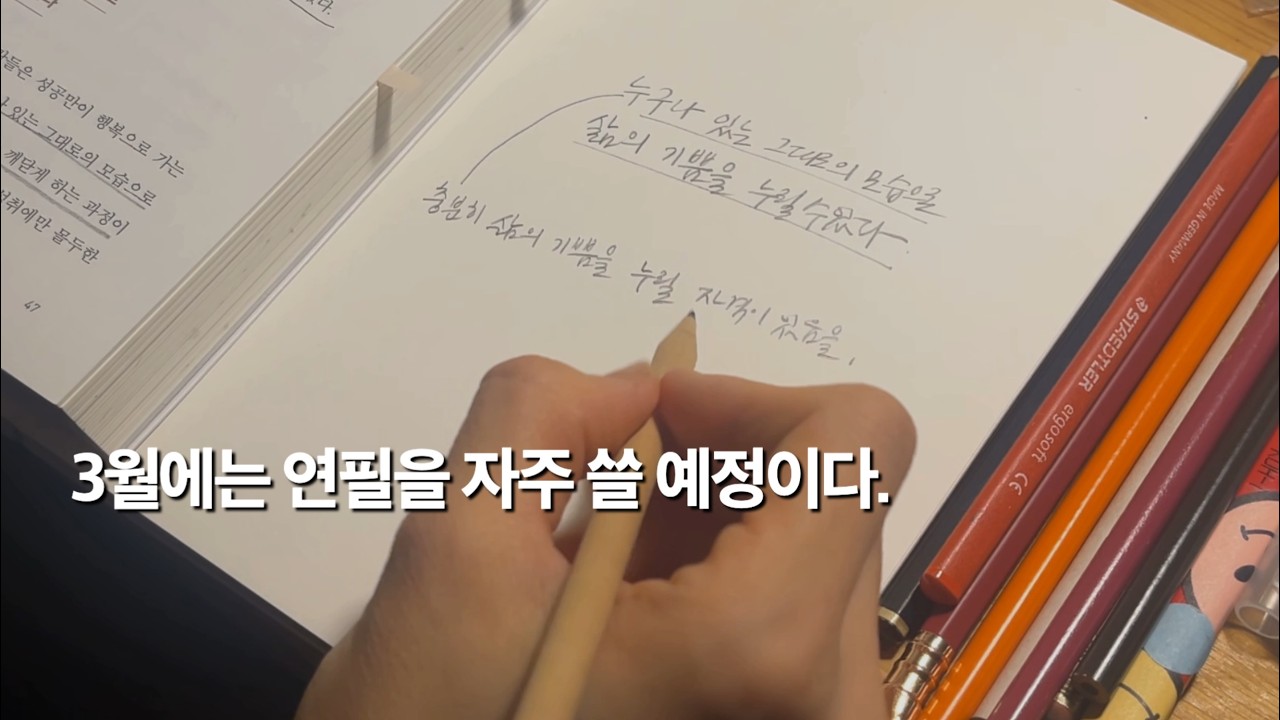 다.
람들은 성공만이 행복으로 가는
있는 그대로의 모습으로
깨닫게 하는 과정이
성취에만 몰두한
47
누구나 있는 그대로의 모습으로
삶의 기쁨을 누릴 수 있다
충분히 삶의 기쁨을 누릴 자격이 있음을.
3월에는 연필을 자주 쓸 예정이다.
MADE IN GERMANY
STAEDTLER
ergosoft
CE